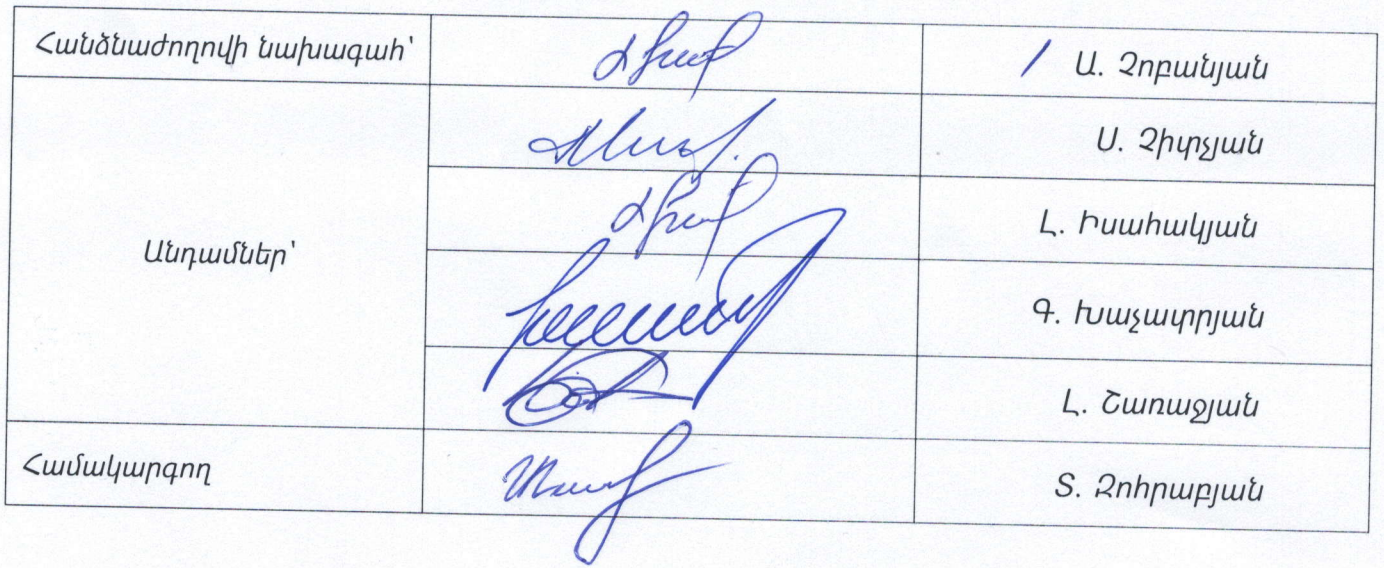 Հանձնաժողովի նախագահ՝
Ա. Չոբանյան
Անդամներ՝
Ս. Չիտչյան
Լ. Իսահակյան
Գ. Խաչատրյան
Լ. Շառաջյան
Համակարգող
Տ. Զոհրաբյան